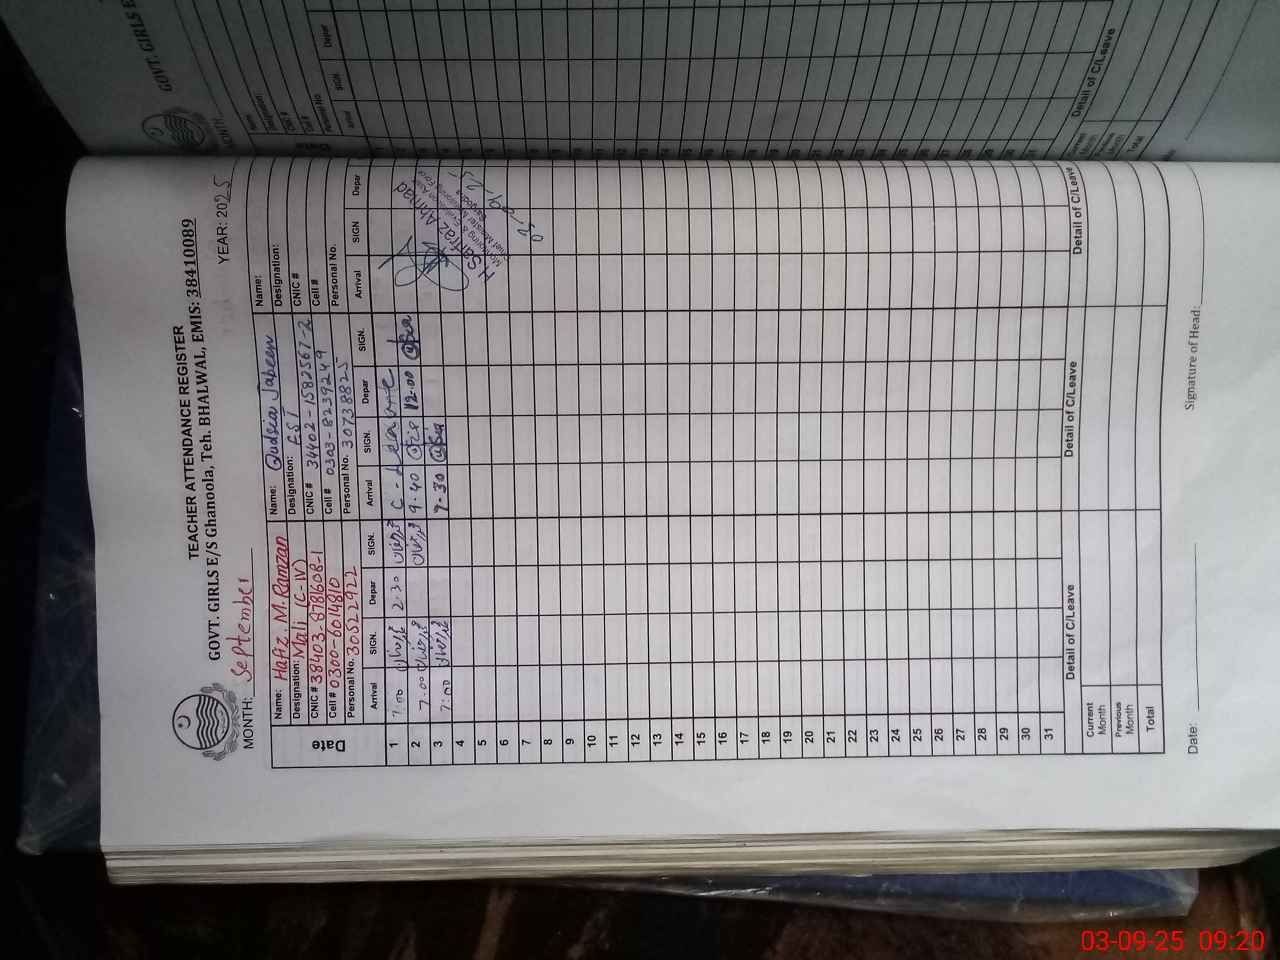 TEACHER ATTENDANCE REGISTER
GOVT. GIRLS E/S Ghanoola, Teh. BHALWAL, EMIS: 38410089
MONTH: September YEAR: 2025
Name: Hafiz. M. Ramzan Name: Qudsia Jabeen Name:
Designation: Mali (C-IV) Designation: EST Designation:
CNIC # 38403-8781608-1 CNIC # 34402-1582567-2 CNIC #
Cell # 0300-6014810 Cell # 0303-8239249 Cell #
Personal No. 30522922 Personal No. 30738825 Personal No.
Date Arrival SIGN. Depar SIGN. Arrival SIGN. Depar SIGN. Arrival SIGN Depar
1 7:00 2.30 C - Leave
2 7.00 9.40 12.00
3 7:00 7.30
4
5
6
7
8
9
10
11
12
13
14
15
16
17
18
19
20
21
22
23
24
25
26
27
28
29
30
31
Detail of C/Leave Detail of C/Leave Detail of C/Leave
Current Month
Previous Month
Total
Date: Signature of Head:
H. Sarfraz Ahmad
Monitoring & Evaluation
Sargodha
GOVT. GIRLS E
MONTH:
Designation:
CNIC #
Cell #
Personal No.
Arrival SIGN. Depar
Detail of C/Leave
Total
03-09-25 09:20